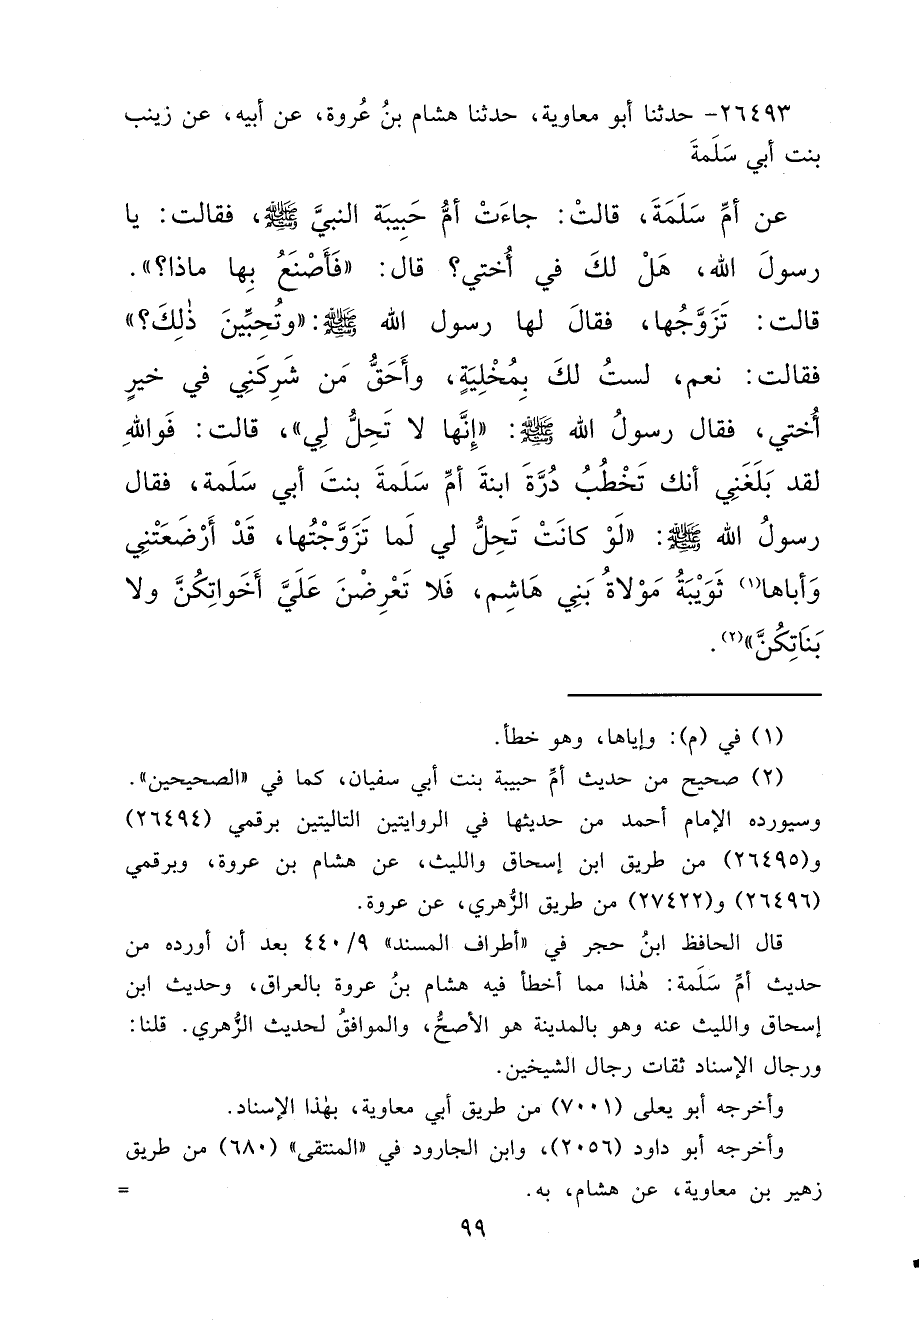 ٢٦٤٩٣- حدثنا أبو معاوية، حدثنا هشام بنُ عُروة، عن أبيه، عن زينب
بنت أبي سَلَمةَ
عن أمِّ سَلَمَةَ، قالتْ: جاءَتْ أمُّ حَبِيبَة النبيَّ ﷺ، فقالت: يا
رسولَ الله، هَلْ لكَ في أُختي؟ قال: «فَأَصْنَعُ بِها ماذا؟».
قالت: تَزَوَّجُها، فقالَ لها رسول الله ﷺ: «وتُحِبِّينَ ذٰلِكَ؟»
فقالت: نعم، لستُ لكَ بِمُخْلِيَةٍ، وأَحَقُّ مَن شَرِكَنِي في خيرٍ
أُختي، فقال رسولُ الله ﷺ: «إِنَّها لا تَحِلُّ لِي»، قالت: فَواللهِ
لقد بَلَغَنِي أنك تَخْطُبُ دُرَّةَ ابنةَ أمِّ سَلَمةَ بنتَ أبي سَلَمة، فقال
رسولُ الله ﷺ: «لَوْ كانَتْ تَحِلُّ لي لَما تَزَوَّجْتُها، قَدْ أَرْضَعَتْنِي
وَأَباها(١) ثَوَيْبَةُ مَوْلاةُ بَنِي هَاشِم، فَلا تَعْرِضْنَ عَلَيَّ أَخَواتِكُنَّ ولا
بَنَاتِكُنَّ»(٢).
(١) في (م): وإياها، وهو خطأ.
(٢) صحيح من حديث أمِّ حبيبة بنت أبي سفيان، كما في «الصحيحين».
وسيورده الإمام أحمد من حديثها في الروايتين التاليتين برقمي (٢٦٤٩٤)
و(٢٦٤٩٥) من طريق ابن إسحاق والليث، عن هشام بن عروة، وبرقمي
(٢٦٤٩٦) و(٢٧٤٢٢) من طريق الزُّهري، عن عروة.
قال الحافظ ابنُ حجر في «أطراف المسند» ٩/ ٤٤٠ بعد أن أورده من
حديث أمِّ سَلَمة: هٰذا مما أخطأ فيه هشام بنُ عروة بالعراق، وحديث ابن
إسحاق والليث عنه وهو بالمدينة هو الأصحُّ، والموافقُ لحديث الزُّهري. قلنا:
ورجال الإسناد ثقات رجال الشيخين.
وأخرجه أبو يعلى (٧٠٠١) من طريق أبي معاوية، بهٰذا الإسناد.
وأخرجه أبو داود (٢٠٥٦)، وابن الجارود في «المنتقى» (٦٨٠) من طريق
زهير بن معاوية، عن هشام، به. =
٩٩